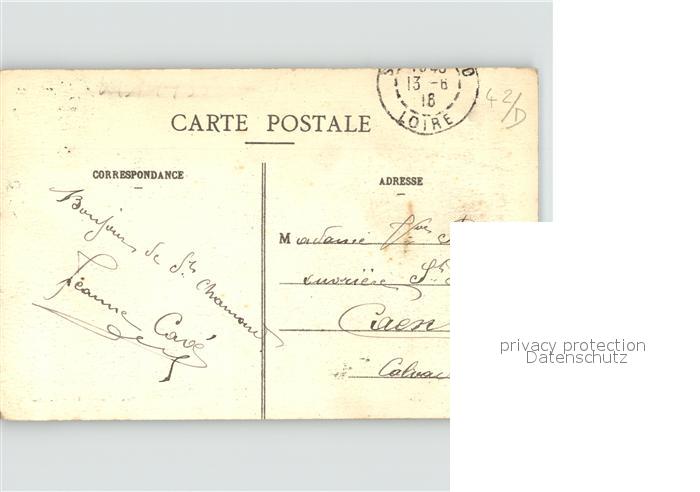 1945
13 -6
18
LOIRE
42/D
CARTE POSTALE
CORRESPONDANCE
ADRESSE
Bonjour de St Chamond
Jeanne Cavé
Madame
ouvrière St
Caen
Calva
privacy protection
Datenschutz